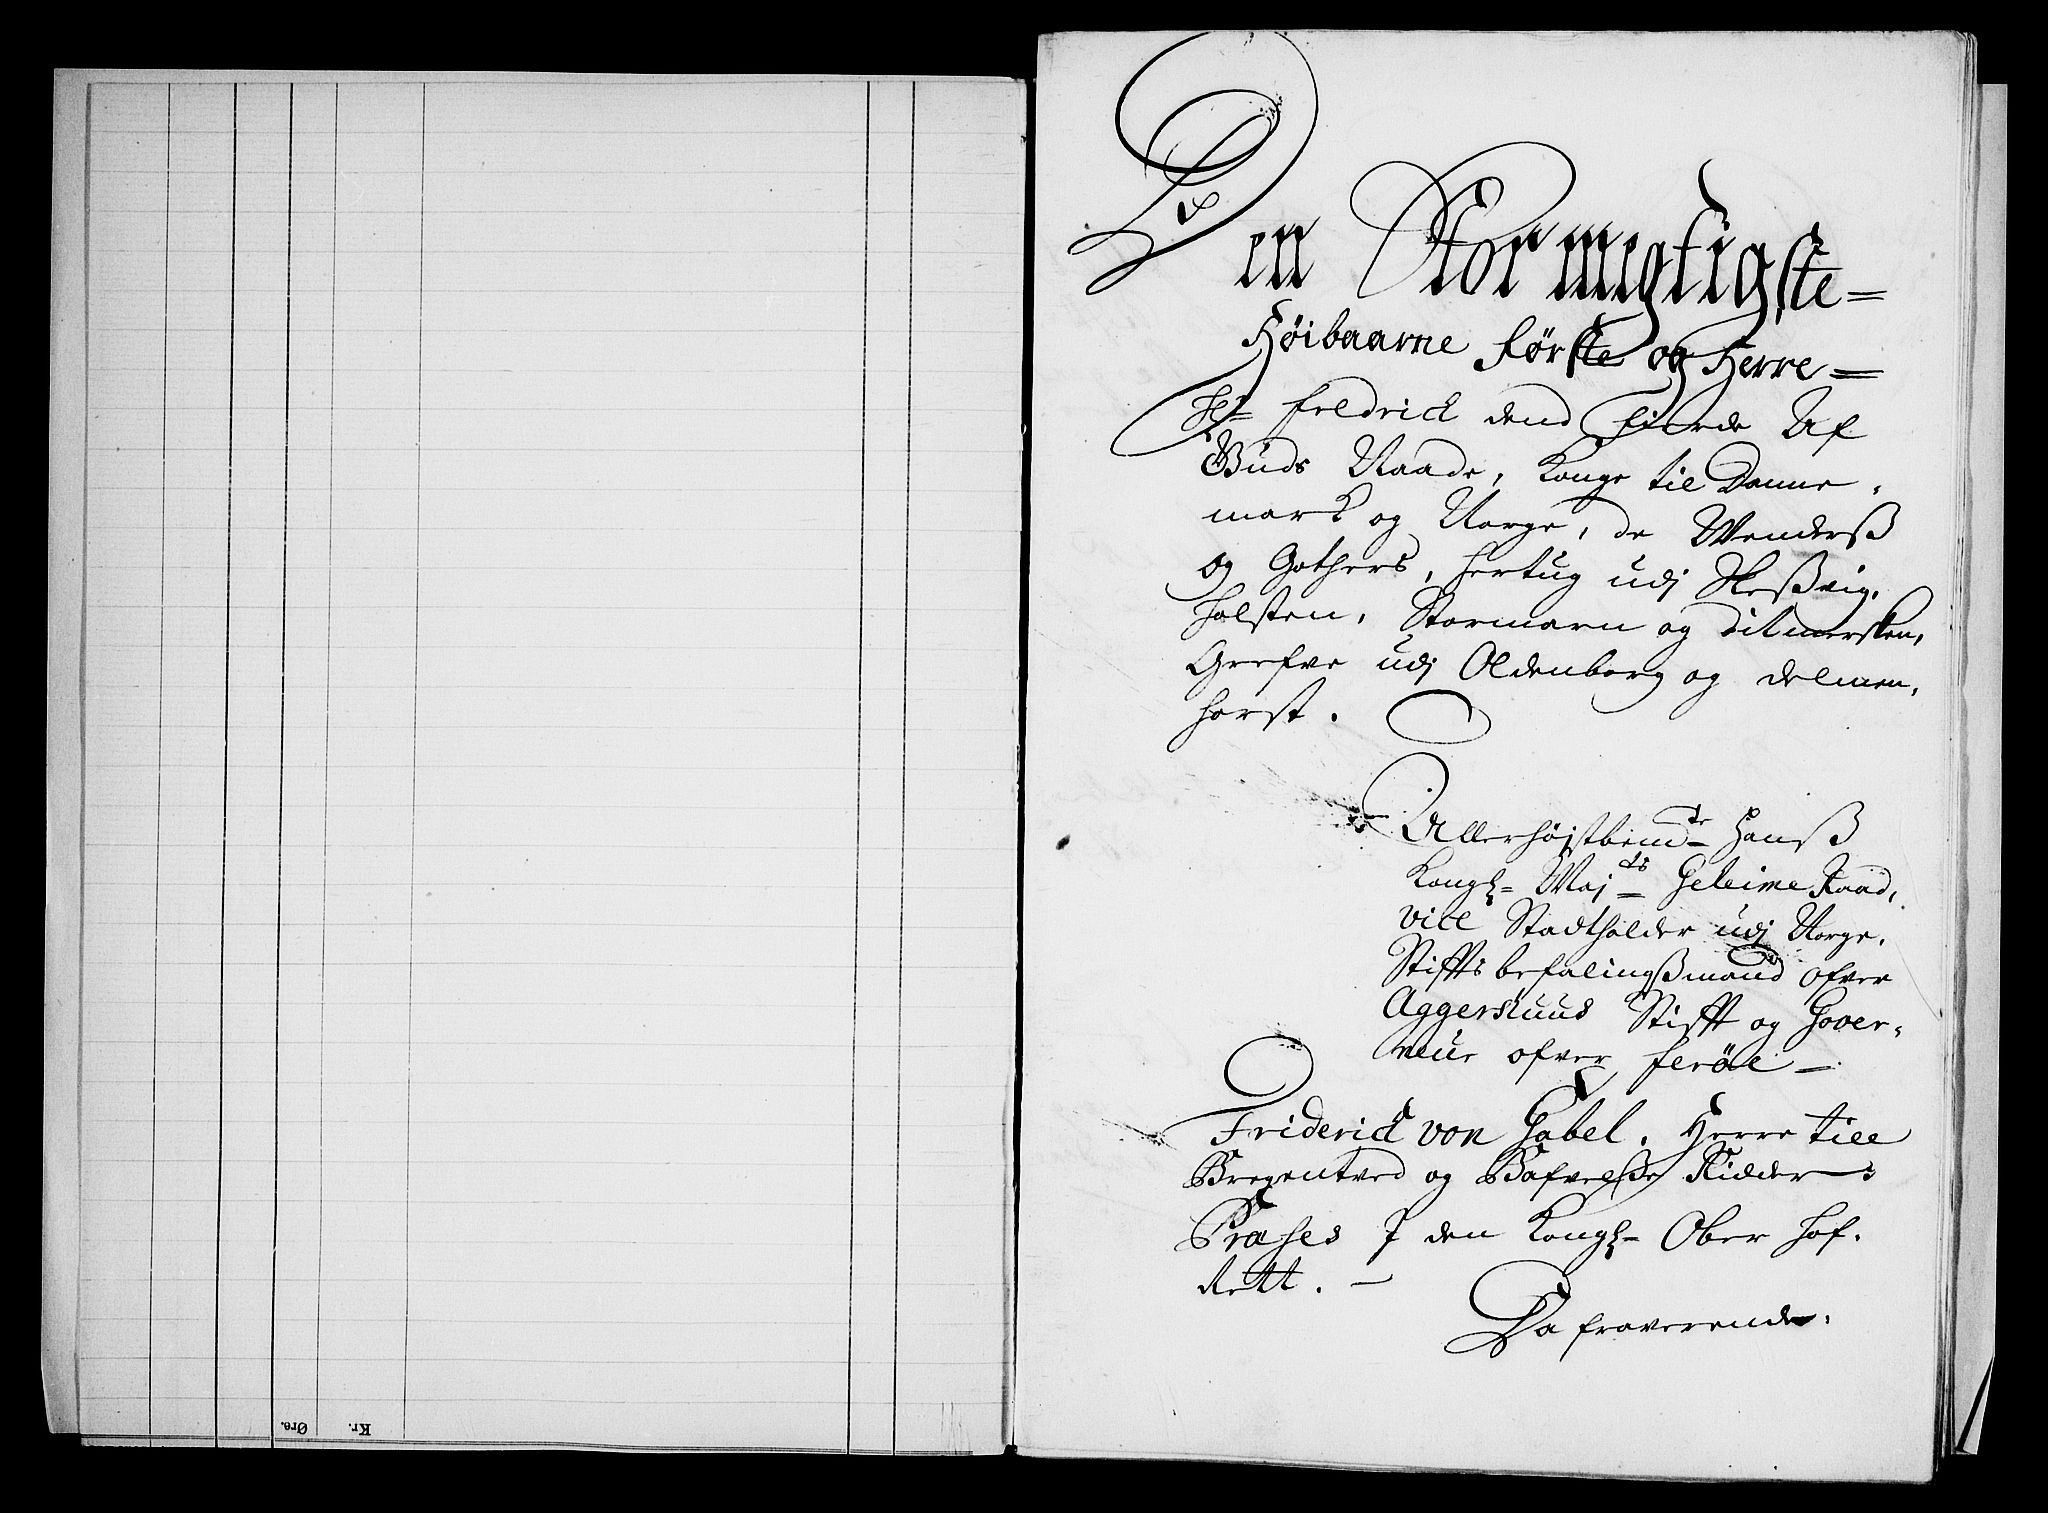 Den Stormegtigste=
Høibaarne Første og Herre=
Hr Fredrick dend Fierde Af
Guds Naade, Konge til Danne,
mark og Norge, de Wenderß
og Gothers, Hertug udj Sleßvig,
Holsten, Stormarn og Ditmersken,
Grefve udj Oldenborg og Delmen,
horst.
Allerhøjstbemte Hanß
Kongl= Majts Geheime Raad,
Vice Stadtholder udj Norge,
Stifftsbefalingßmand ofver
Aggershuus Stifft og Gover,
neur ofver Ferøe—
Friderick von Gabel, Herre till
Bregentved og Bafvelße Ridder—
Præses I den Kongl= Ober Hof,
Rett.—
Da fraverende,
Øre. Kr.